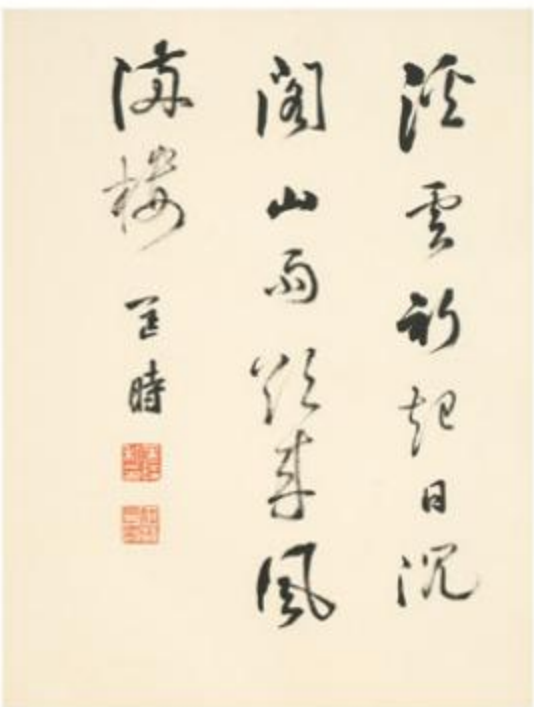 溪雲初起日沉
閣山雨欲來風
滿樓 匡時